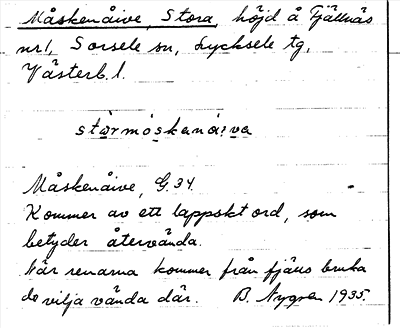 Måskenåive, Stora, höjd å Fjällnäs
nr 1, Sorsele sn, Lycksele tg,
Västerb. l.
stɷrmóskenái̯va
Måskenåive, G. 34.
Kommer av ett lappskt ord, som
betyder återvända.
När renarna kommer från fjälls bruka
de vilja vända där. B. Nygren 1935.